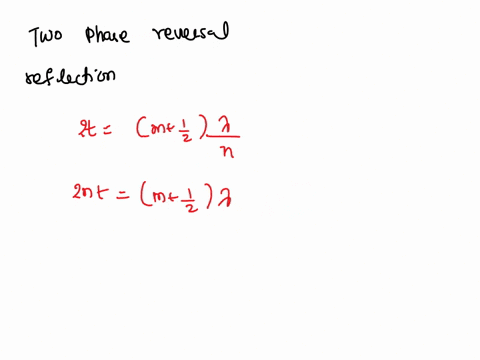 Two phase reversal
reflection
2t = (m+1/2) λ/n
2nt = (m+1/2) λ